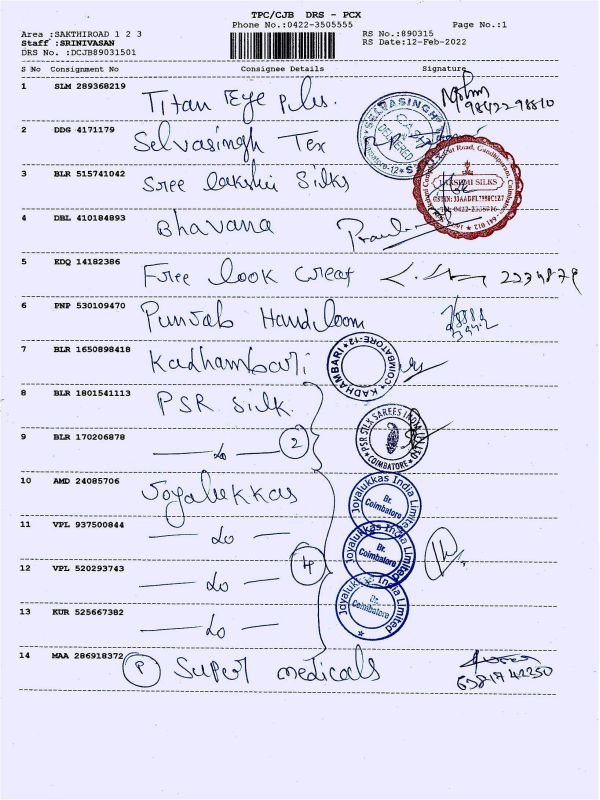 TPC/CJB DRS - PCX
Phone No.:0422-3505555 Page No.:1
Area :SAKTHIROAD 1 2 3 RS No.:890315
Staff :SRINIVASAN RS Date:12-Feb-2022
DRS No. :DCJB89031501
S No Consignment No Consignee Details Signature
1 SLM 289368219 Titan Eye plus.
98422-98810
2 DDG 4171179 Selvasingh Tex
SELVASINGH
DELIVERED
3 BLR 515741042 Sree lakshmi Silks
LAKSHMI SILKS
4 DBL 410184893 Bhavana
5 EDQ 14182386 Free look creat 2234879
6 PNP 530109470 Punjab Handloom
7 BLR 1650898418 Kadhambari
KADHAMBARI COIMBATORE-12
8 BLR 1801541113 PSR Silk.
PSR SILK SAREES INDIA
COIMBATORE
9 BLR 170206878 — do — 2
10 AMD 24085706 Joyalukkas
Joyalukkas India Limited
Br. Coimbatore
11 VPL 937500844 — do —
Joyalukkas India Limited
Br. Coimbatore
12 VPL 520293743 — do — 4
Joyalukkas India Limited
Br. Coimbatore
13 KUR 525667382 — do —
14 MAA 286918372 P Super medicals